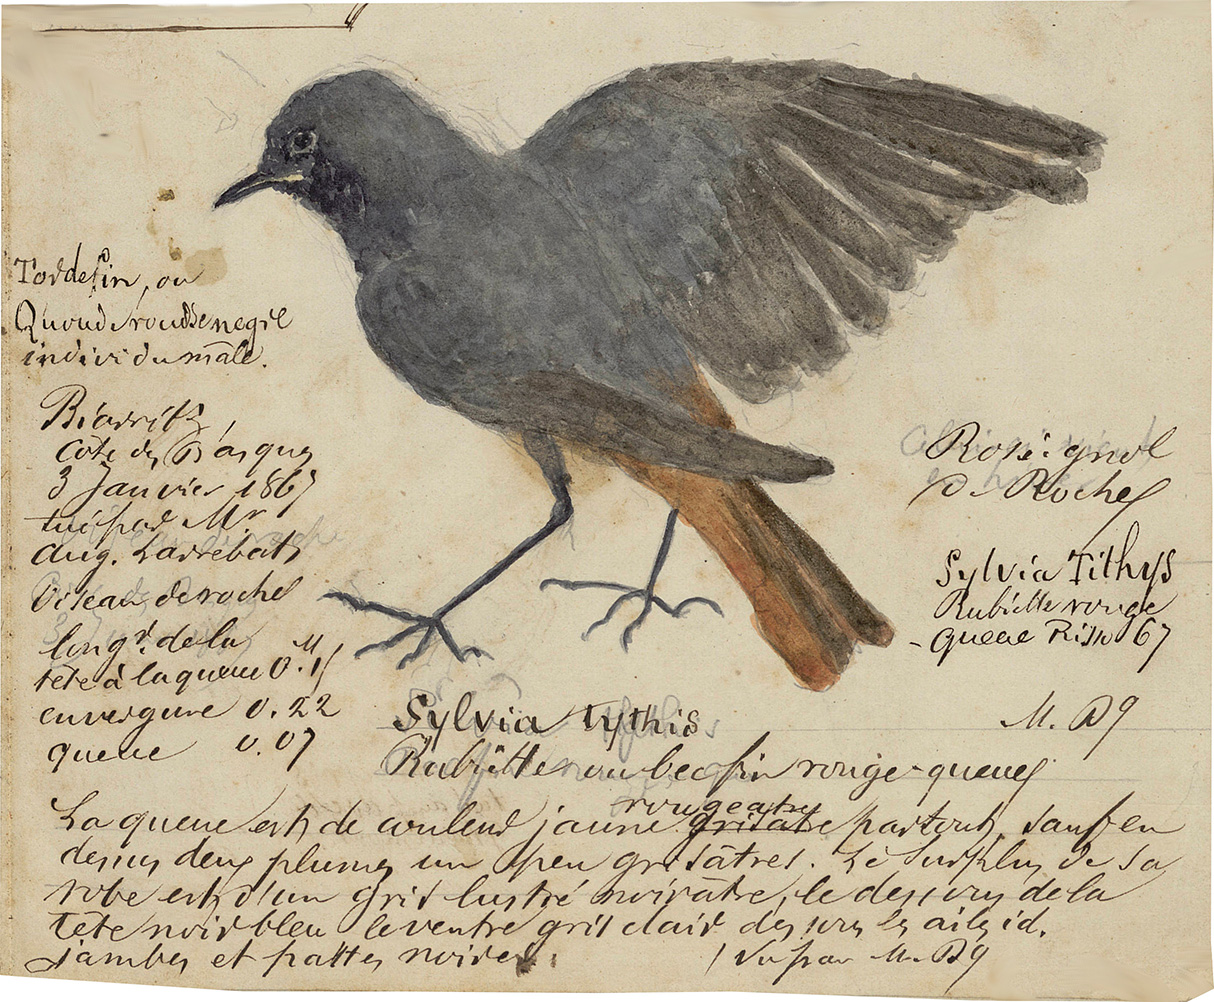 Tordefin, ou
Quoud rousse negre
individu mâle.
Biarritz,
Côte des Basques
3 Janvier 1867
tué par Mr
Aug. Larrebat
Oiseau de roche
longr. de la
tête à la queue 0.M 15
envergure 0.22
queue 0.07
Rosignol
de Roches
Sylvia Tithys
Rubiette rouge
-queue Risso 67
M. D9
Sylvia tythis
Rubiette ou becfin rouge-queue
rougeatre
La queue est de couleur jaune grisatre partout, sauf en
dessus deux plumes un peu grisâtres. Le surplus de sa
robe est d'un gris lustré noirâtre, le dessous de la
tête noir bleu le ventre gris clair dessous les ailes id.
Jambes et pattes noires.
Vu par M. D9